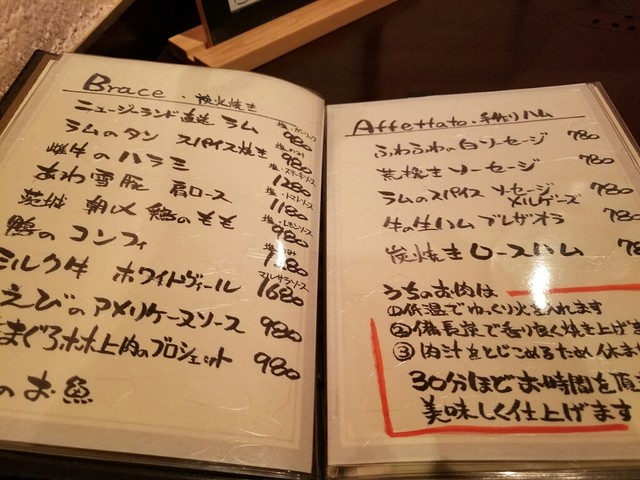 Brace・炭火焼き
ニュージーランド直送 ラム 980
ラムのタン スパイス焼き 980
雌牛のハラミ 1280
あわ雪豚 肩ロース 1180
茨城 朝〆 鶏のもも 980
鴨のコンフィ
ミルク牛 ホワイトヴィール マルサラソース 1680
えびのアメリケーヌソース 980
まぐろホホ肉のブロシェット 980
のお魚
Affettato・手作りハム
ふわふわの白ソーセージ 780
荒挽きソーセージ 780
ラムのスパイスソーセージ メルゲーズ 780
牛の生ハム ブレザオラ 780
炭焼きロースハム 78
うちのお肉は
①低温でゆっくり火を入れます
②備長炭で香り良く焼き上げま
③肉汁をとじこめるため休ませ
30分ほどお時間を頂き
美味しく仕上げます